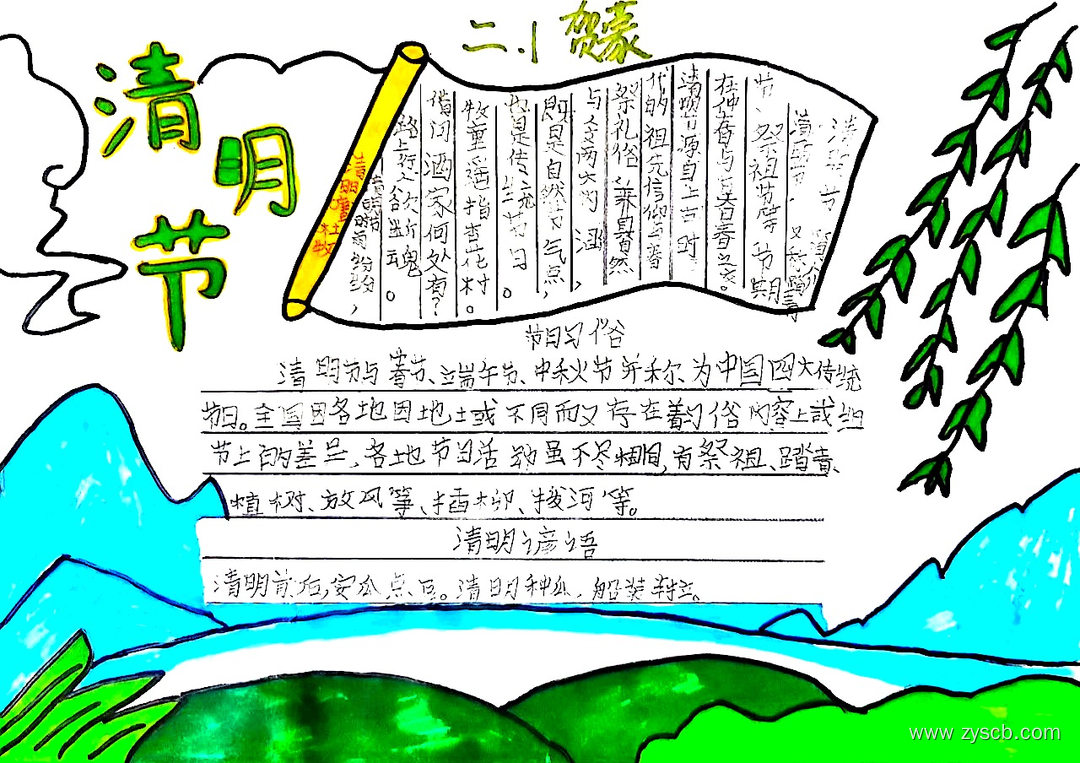 清明节
二.1 贺豪
清明节简介
清明节,又称踏青
节、祭祖节等,节期
在仲春与暮春之交。
清明源自上古时
代的祖先信仰与春
祭礼俗,兼具自然
与人文两大内涵,
既是自然节气点,
也是传统节日。
清明 唐 杜牧
清明时节雨纷纷,
路上行人欲断魂。
借问酒家何处有?
牧童遥指杏花村。
节日习俗
清明节与春节、端午节、中秋节并称为中国四大传统
节日。全国因各地因地土或不同而又存在着习俗内容上或细
节上的差异,各地节日活动虽不尽相同,有祭祖、踏青、
植树、放风筝、插柳、拔河等。
清明谚语
清明前后,安瓜点豆。清明种瓜,船装车拉。
www.zyscb.com